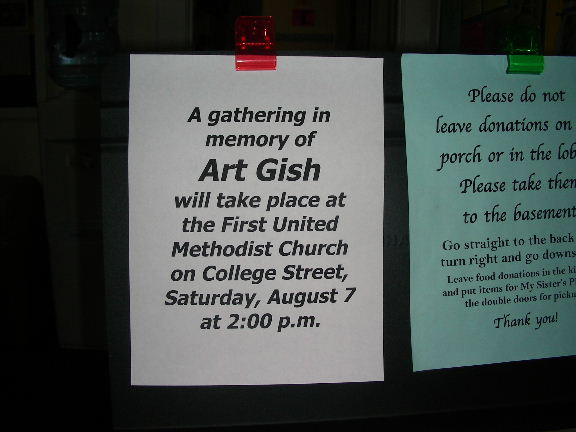 A gathering in
memory of
Art Gish
will take place at
the First United
Methodist Church
on College Street,
Saturday, August 7
at 2:00 p.m.
Please do not
leave donations on
porch or in the
Please take them
to the basement
Go straight to the back
turn right and go
Leave food donations in the
and put items for My Sister's
the double doors for
Thank you!